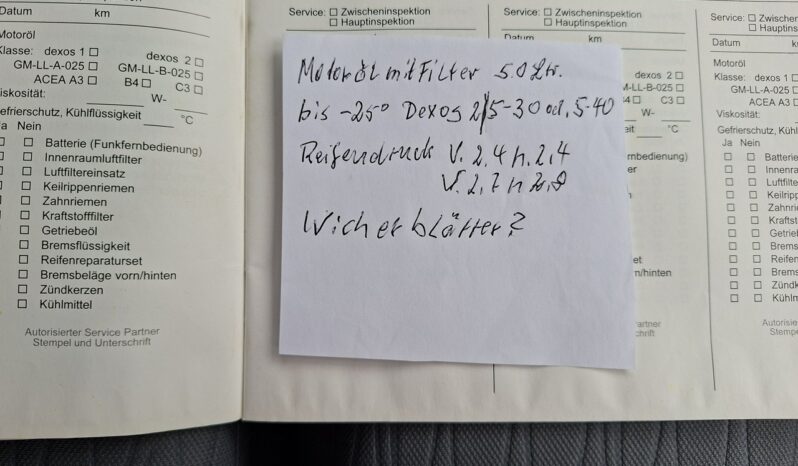 Datum km
Motoröl
Klasse: dexos 1 ☐ dexos 2 ☐
GM-LL-A-025 ☐ GM-LL-B-025 ☐
ACEA A3 ☐ B4 ☐ C3 ☐
Viskosität: W-
Gefrierschutz, Kühlflüssigkeit °C
Ja Nein
☐ ☐ Batterie (Funkfernbedienung)
☐ ☐ Innenraumluftfilter
☐ ☐ Luftfiltereinsatz
☐ ☐ Keilrippenriemen
☐ ☐ Zahnriemen
☐ ☐ Kraftstofffilter
☐ ☐ Getriebeöl
☐ ☐ Bremsflüssigkeit
☐ ☐ Reifenreparaturset
☐ ☐ Bremsbeläge vorn/hinten
☐ Zündkerzen
☐ Kühlmittel
Autorisierter Service Partner
Stempel und Unterschrift
Service: ☐ Zwischeninspektion
☐ Hauptinspektion
Motoröl mit Filter 5.0 Ltr.
bis -25° Dexos 2/5-30 od. 5-40
Reifendruck V. 2,4 h. 2,4
V. 2,7 h
Wicherblätter?
Service: ☐ Zwischeninspektion
☐ Hauptinspektion
Datum km
dexos 2 ☐
-LL-B-025 ☐
C3 ☐
W-
°C
vorn/hinten
Service: ☐
☐ Hauptinspektion
Datum km
Motoröl
Klasse: dexos 1
GM-LL-A-025
ACEA A3
Viskosität:
Gefrierschutz,
Ja Nein